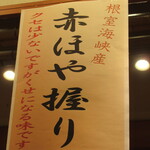 根室海峡産
赤ほや握り
クセは少ないですがくせになる味です